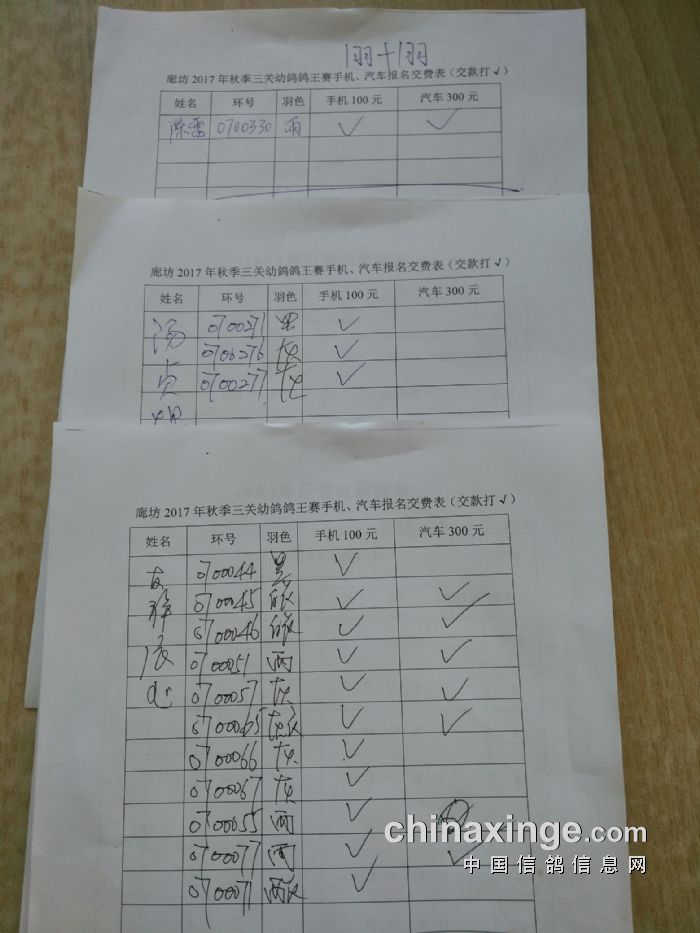 1羽+1羽
廊坊2017年秋季三关幼鸽鸽王赛手机、汽车报名交费表（交款打√）
姓名 环号 羽色 手机100元 汽车300元
陈雷 0700330 雨 √ √
廊坊2017年秋季三关幼鸽鸽王赛手机、汽车报名交费表（交款打√）
姓名 环号 羽色 手机100元 汽车300元
汤 0700271 黑 √
0706276 灰 √
贞 0700277 灰 √
廊坊2017年秋季三关幼鸽鸽王赛手机、汽车报名交费表（交款打√）
姓名 环号 羽色 手机100元 汽车300元
0700044 黑 √
0700045 √ √
0700046 √ √
0700051 雨 √ √
0700057 灰 √ √
0700065 √ √
0700066 灰 √
0700067 灰 √
0700055 雨 √
0700077 雨 √ √
0700071 √
chinaxinge.com
中国信鸽信息网